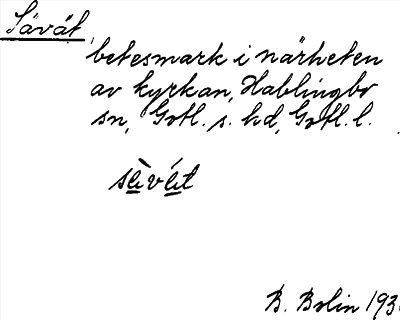 Sävät,
betesmark i närheten
av kyrkan, Hablingbo
sn, Gotl. s. hd, Gotl. l.
B. Bolin 193